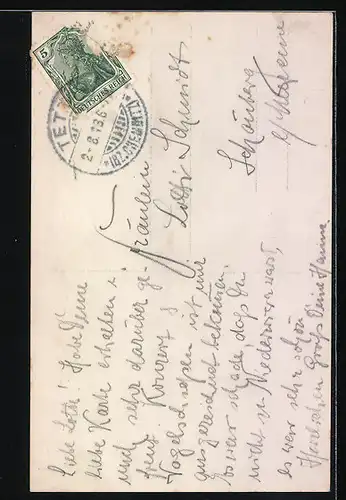 5
DEUTSCHES REICH
TET
2-8.13.6
(BZ. CHEMNITZ)
Fräulein
Lotti Schmidt
Schönberg
Liebe Lotti! Habe Deine
liebe Karte erhalten &
mich sehr darüber ge-
freut. Konzert &
Vogelschießen ist mir
ausgezeichnet bekommen.
Es war schade daß Du
nicht in Niederwiera warst,
es war sehr schön.
Herzlichen Gruß Deine Hanna